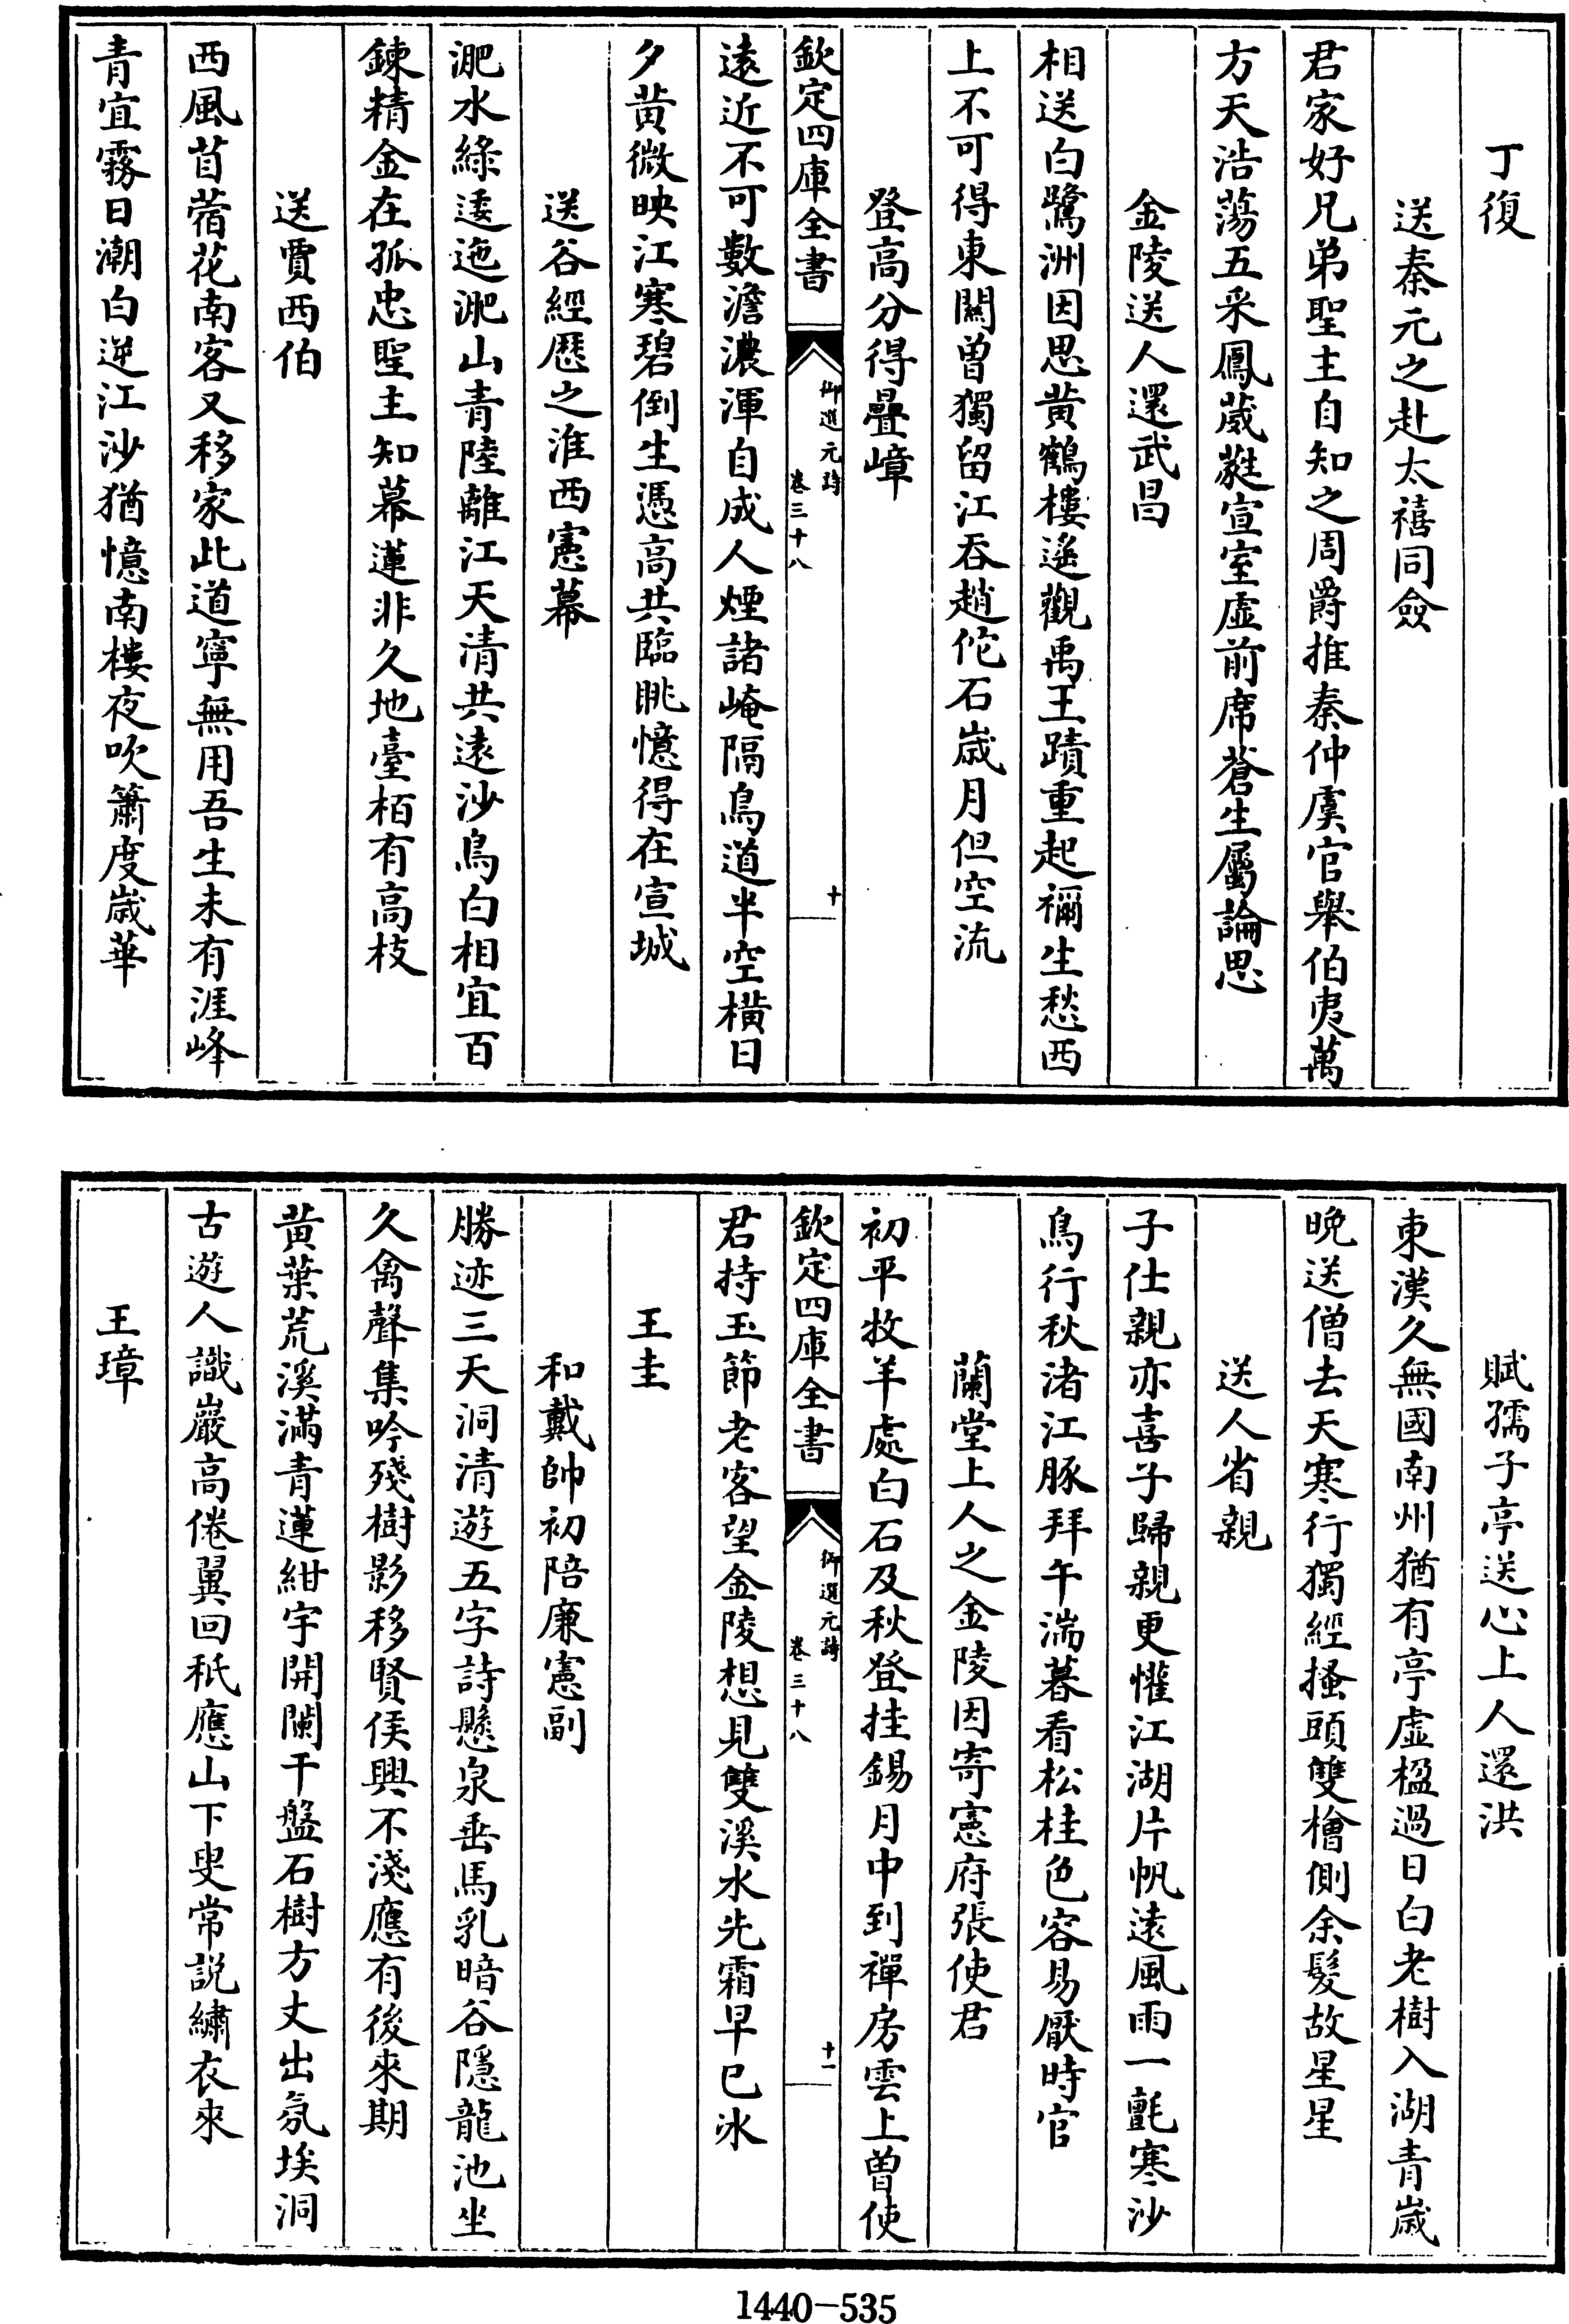 丁復
送秦元之赴太禧同僉
君家好兄弟聖主自知之周爵推秦仲虞官舉伯夷萬
方天浩蕩五采鳳葳蕤宣室虛前席蒼生屬論思
金陵送人還武昌
相送白鷺洲因思黄鶴樓遙觀禹王蹟重起禰生愁西
上不可得東闗曽獨留江吞趙佗石嵗月但空流
登高分得疊嶂
欽定四庫全書
御選元詩
卷三十八
十
遠近不可數澹濃渾自成人煙諸崦隔鳥道半空橫日
夕黄微映江寒碧倒生憑高共臨眺憶得在宣城
送谷經歴之淮西憲幕
淝水綠逶迤淝山青陸離江天清共遠沙鳥白相宜百
鍊精金在孤忠聖主知幕蓮非久地臺栢有高枝
送賈西伯
西風苜蓿花南客又移家此道寧無用吾生未有涯峰
青宜霧日潮白逆江沙猶憶南樓夜吹簫度嵗華
賦孺子亭送心上人還洪
東漢久無國南州猶有亭虛楹過日白老樹入湖青嵗
晚送僧去天寒行獨經搔頭雙檜側余髮故星星
送人省親
子仕親亦喜子歸親更懽江湖片帆遠風雨一氊寒沙
鳥行秋渚江豚拜午湍暮看松桂色容易厭時官
蘭堂上人之金陵因寄憲府張使君
初平牧羊處白石及秋登挂錫月中到禪房雲上曽使
欽定四庫全書
御選元詩
卷三十八
十一
君持玉節老客望金陵想見雙溪水先霜早已冰
王圭
和戴帥初陪廉憲副
勝迹三天洞清遊五字詩懸泉垂馬乳暗谷隱龍池坐
久禽聲集吟殘樹影移賢侯興不淺應有後來期
黄葉荒溪滿青蓮紺宇開闌干盤石樹方丈出氛埃洞
古遊人識巖高倦翼回秖應山下叟常説繡衣來
王璋
1440-535